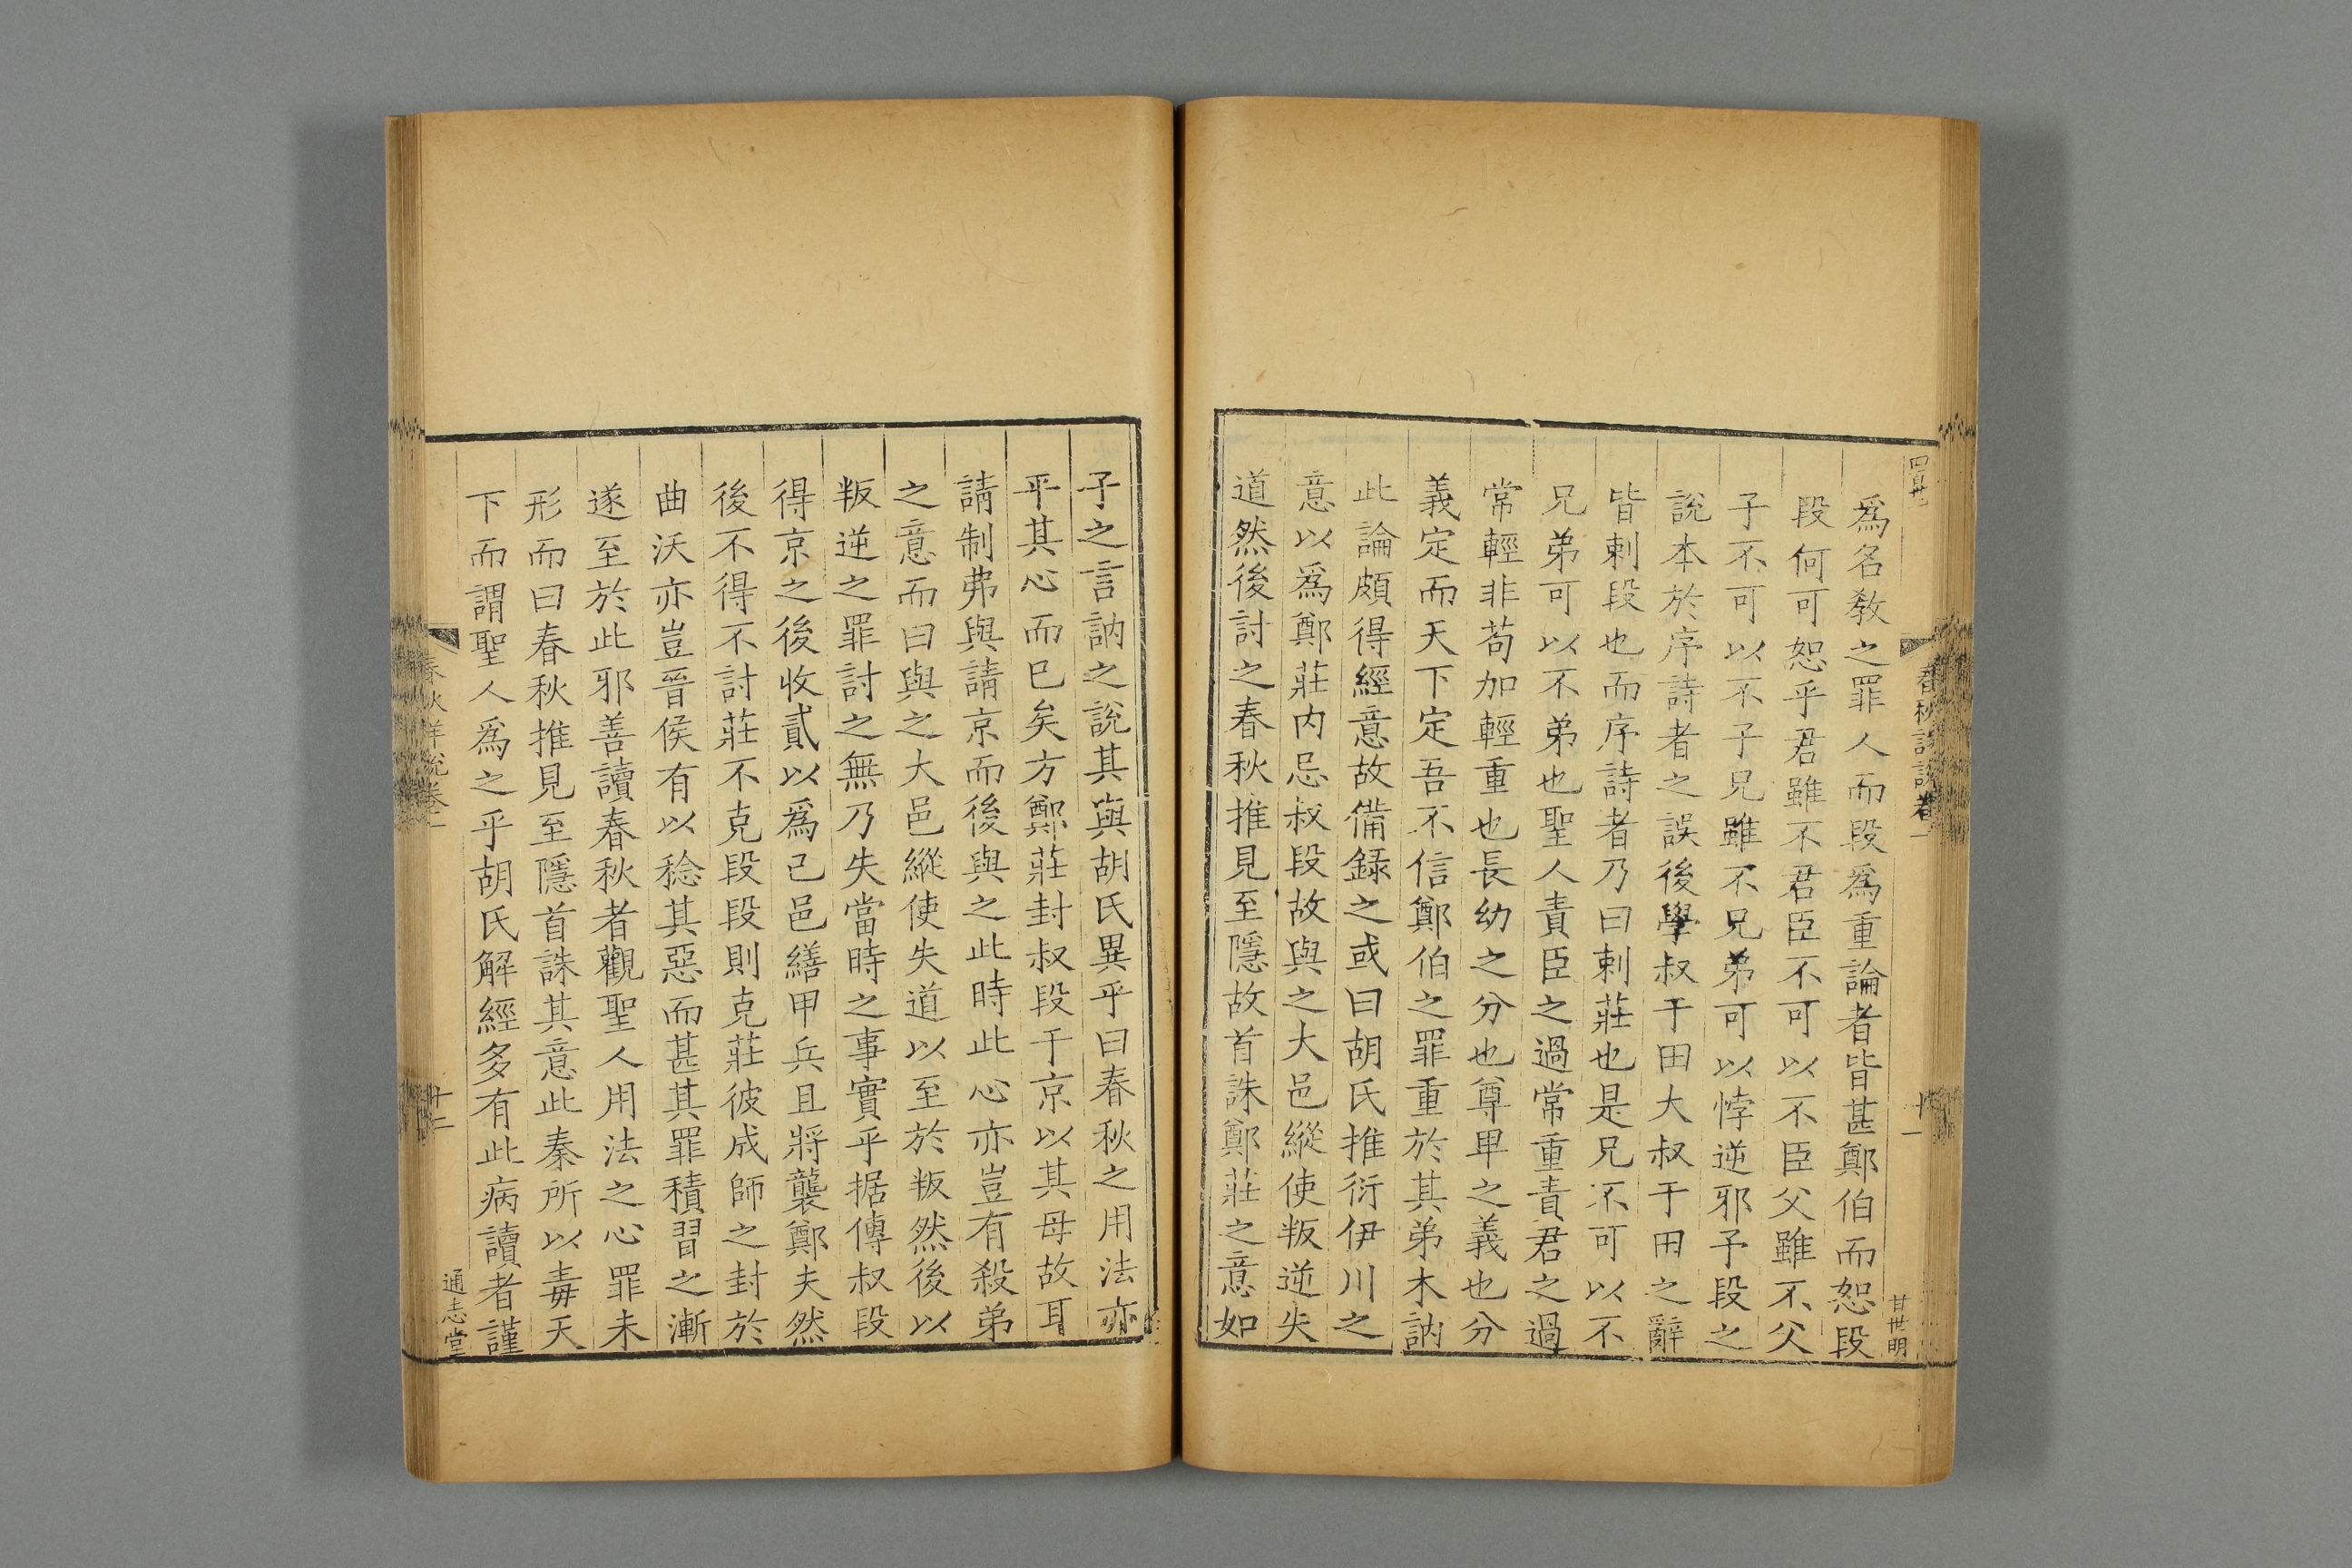 春秋詳說卷一
十一
甘世明
爲名敎之罪人而段爲重論者皆甚鄭伯而恕段
段何可恕乎君雖不君臣不可以不臣父雖不父
子不可以不子兄雖不兄弟可以悖逆邪予段之
說本於序詩者之誤後學叔于田大叔于田之辭
皆刺段也而序詩者乃曰刺莊也是兄不可以不
兄弟可以不弟也聖人責臣之過常重責君之過
常輕非苟加輕重也長幼之分也尊卑之義也分
義定而天下定吾不信鄭伯之罪重於其弟木訥
此論頗得經意故備錄之或曰胡氏推衍伊川之
意以爲鄭莊内忌叔段故與之大邑縱使叛逆失
道然後討之春秋推見至隱故首誅鄭莊之意如
子之言訥之說其與胡氏異乎曰春秋之用法亦
平其心而已矣方鄭莊封叔段于京以其母故耳
請制弗與請京而後與之此時此心亦豈有殺弟
之意而曰與之大邑縱使失道以至於叛然後以
叛逆之罪討之無乃失當時之事實乎据傳叔段
得京之後收貳以爲己邑繕甲兵且將襲鄭夫然
後不得不討莊不克段段則克莊彼成師之封於
曲沃亦豈晉侯有以稔其惡而甚其罪積習之漸
遂至於此邪善讀春秋者觀聖人用法之心罪未
形而曰春秋推見至隱首誅其意此秦所以毒天
下而謂聖人爲之乎胡氏解經多有此病讀者謹
春秋詳說卷一
十二
通志堂